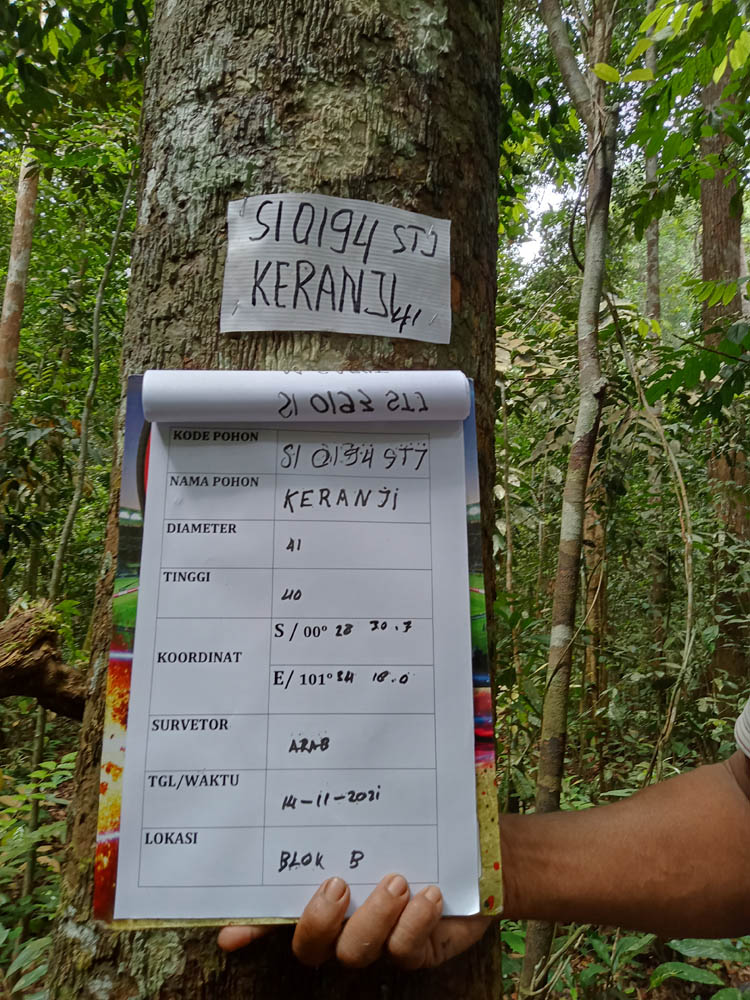 SI 0194 STJ
KERANJI 41
SI 0193 STJ
KODE POHON SI 0194 STJ
NAMA POHON KERANJi
DIAMETER 41
TINGGI 40
KOORDINAT
S / 00° 28 30.7
E/ 101° 34 18.0
SURVETOR ARAB
TGL/WAKTU 14-11-2021
LOKASI BLOK B